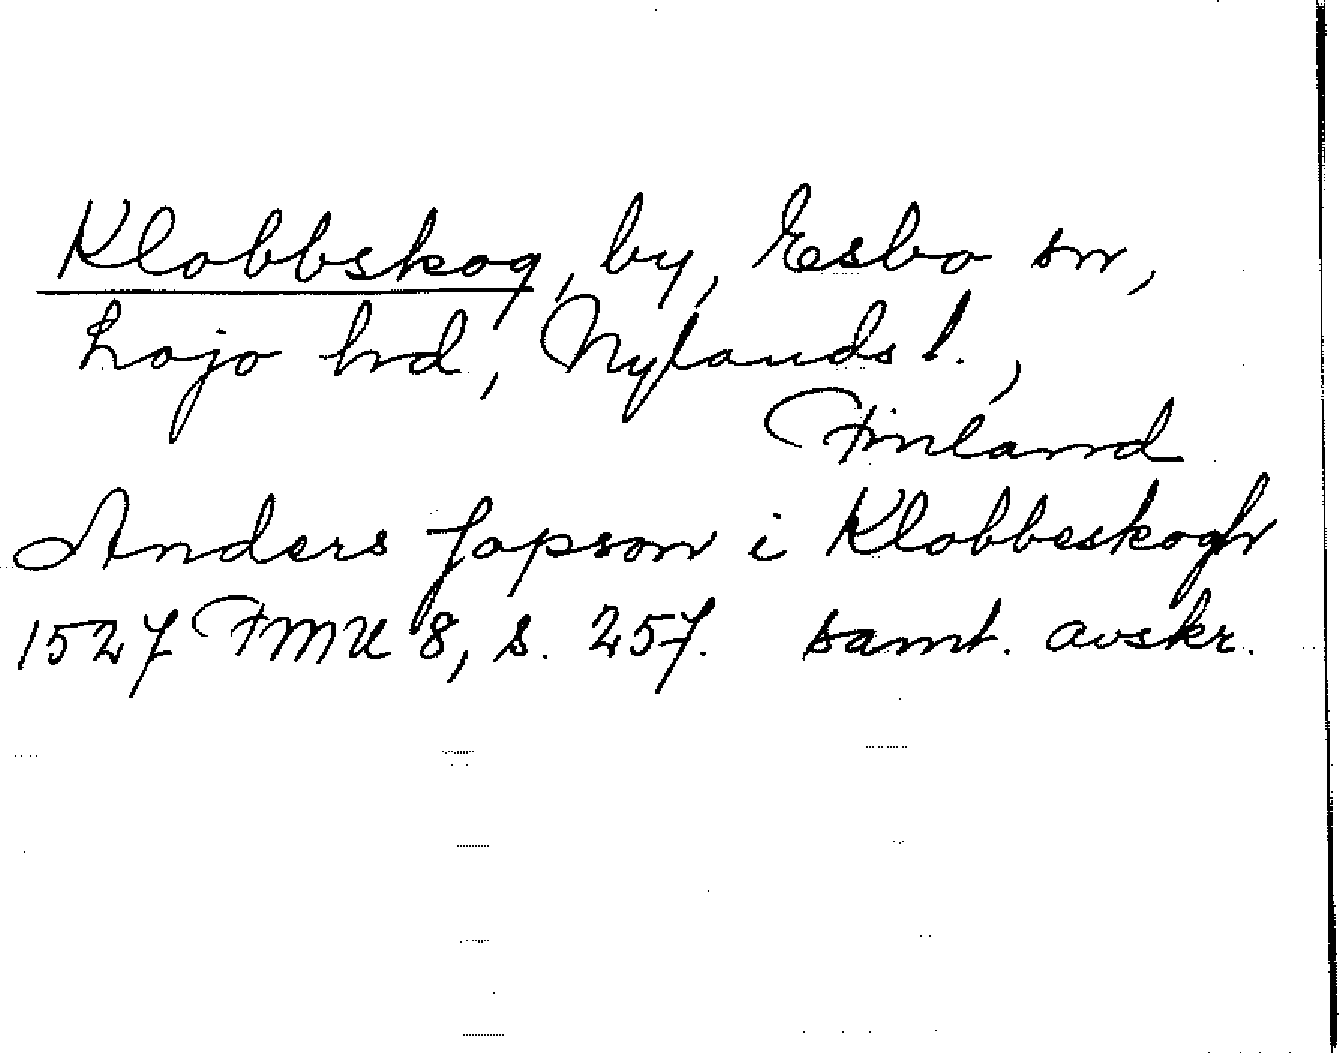 Klobbskog, by, Esbo sn,
Lojo hd, Nylands l.,
Finland
Anders Japson i Klobbeskogh
1527 FMU 8, s. 257. samt. avskr.